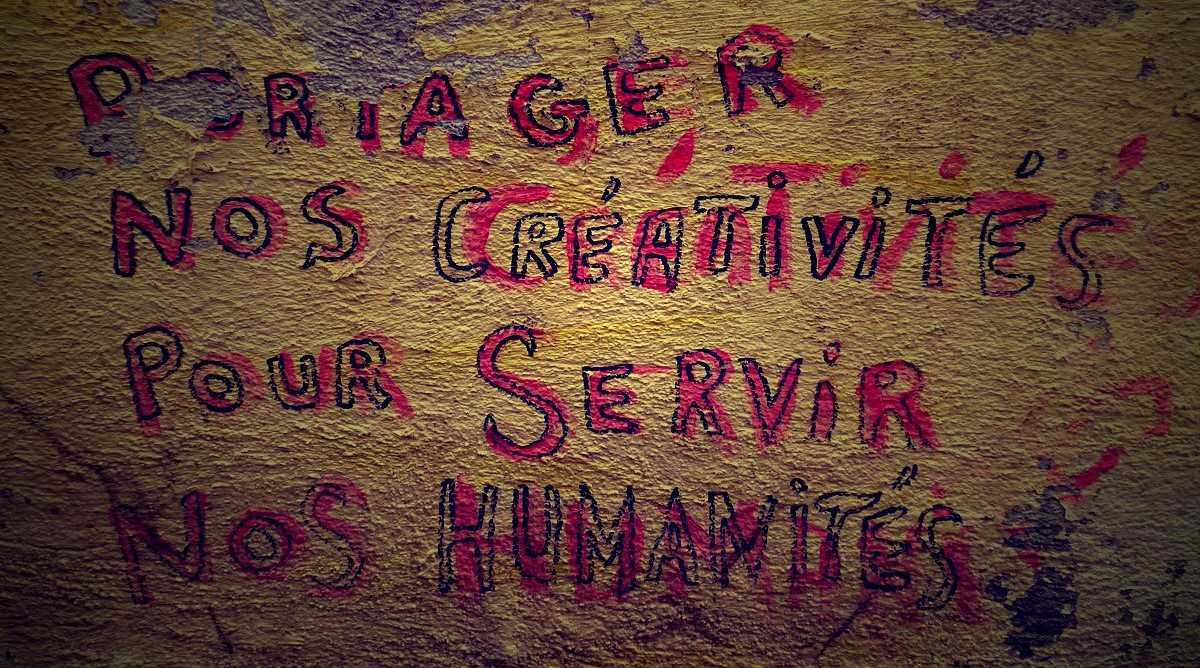 PARTAGER
NOS CRÉATiViTÉS
POUR SERViR
NOS HUMANiTÉS